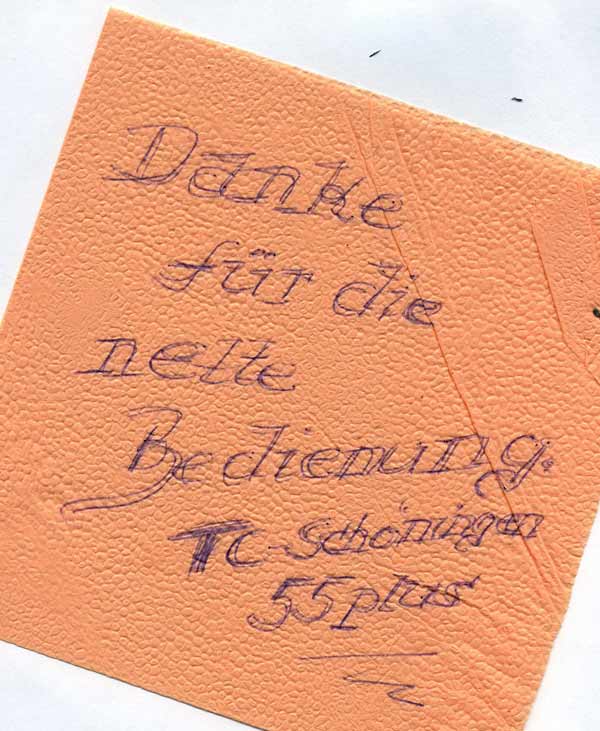 Danke
für die
nette
Bedienung.
TC-Schöningen
55plus